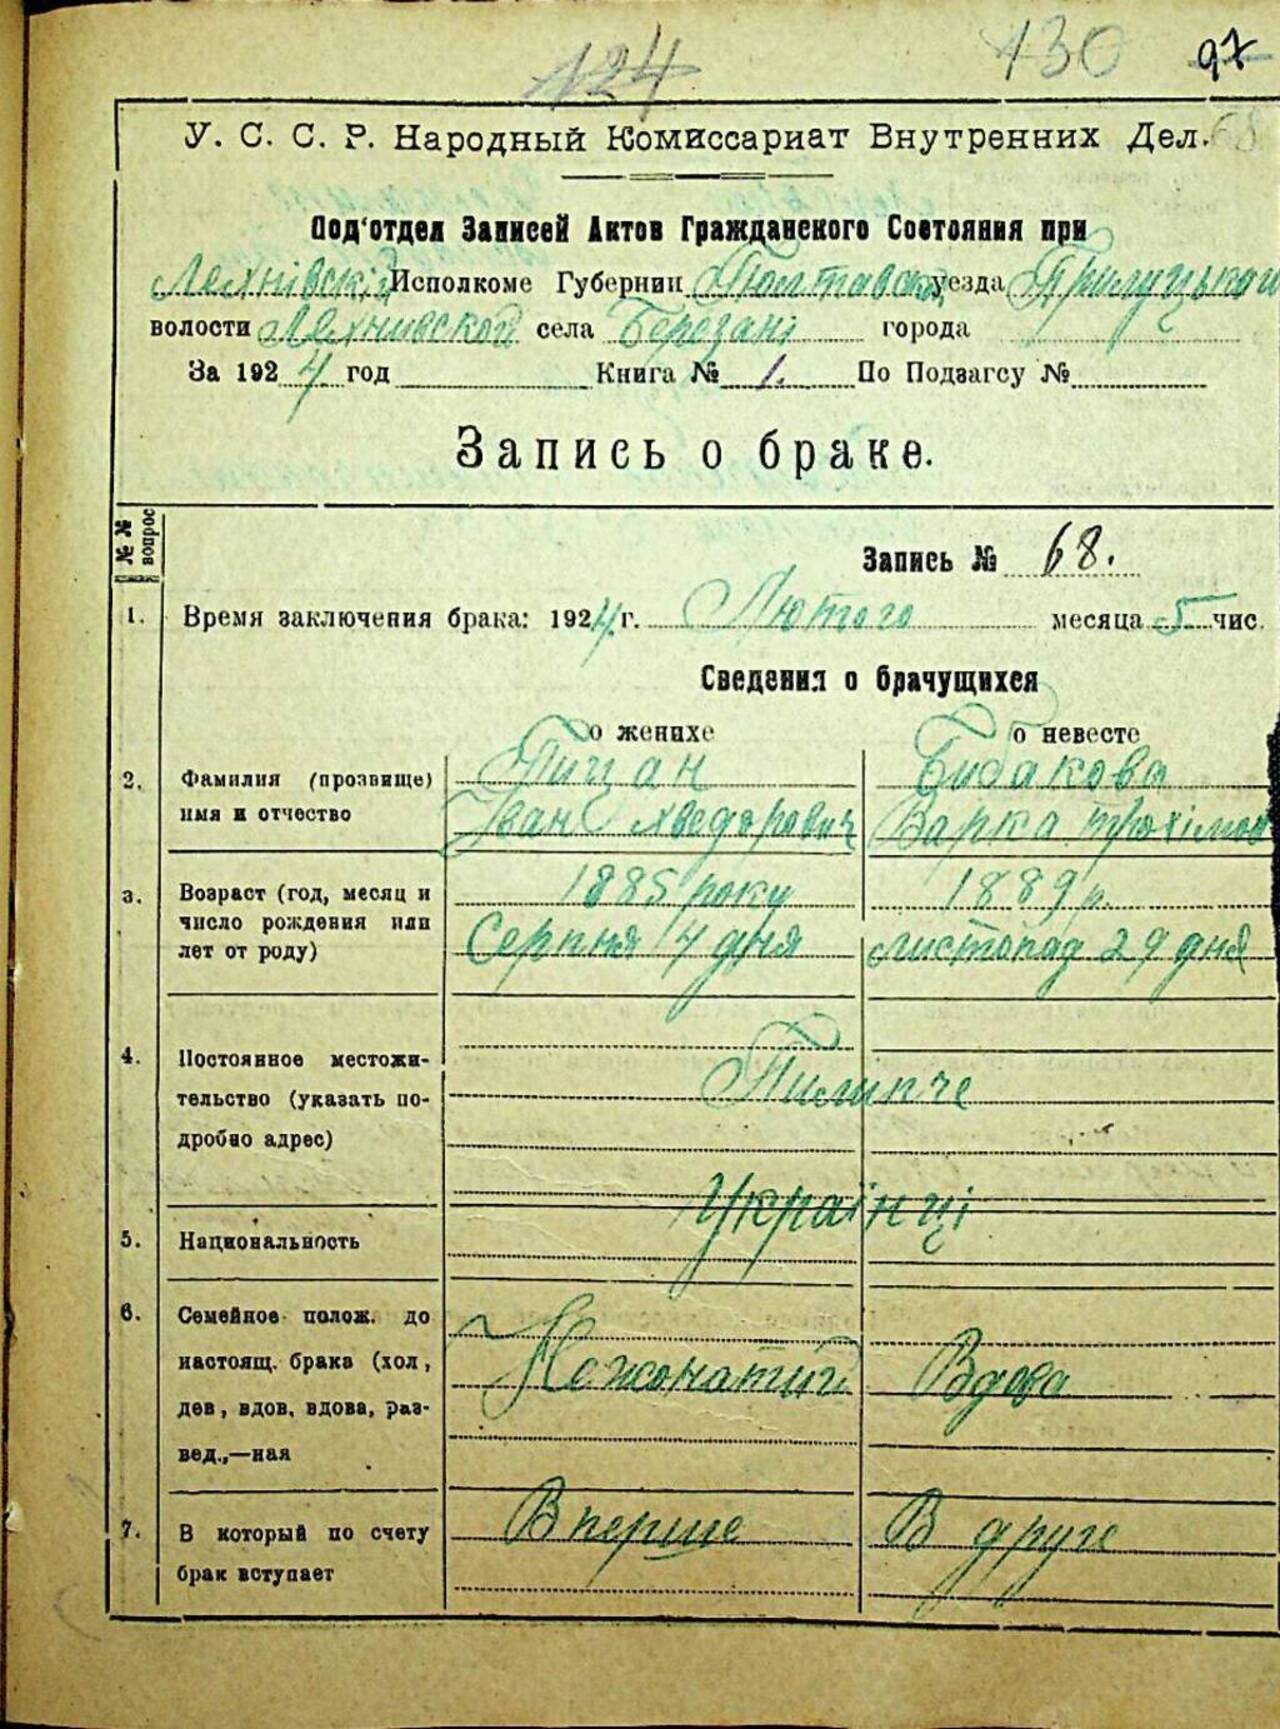 124 130 97
У. С. С. Р. Народный Комиссариат Внутренних Дел. 68
Под'отдел Записей Актов Гражданского Состояния при
Исполкоме Губернии Полтавської уезда Прилуцької
волости Ляхнивской села Березані города
За 1924 год Книга № 1. По Подзагсу №
Запись о браке.
№ № вопрос
Запись № 68.
1. Время заключения брака: 1924 г. Лютого месяца 5 чис.
Сведения о брачущихся
о женихе о невесте
2. Фамилия (прозвище) Бибакова
имя и отчество Іван Хведорович Варка Трохімов
3. Возраст (год, месяц и 1885 року 1889 р.
число рождения или Серпня 4 дня листопад 29 дня
лет от роду)
4. Постоянное местожи-
тельство (указать по-
дробно адрес)
Українці
5. Национальность
6. Семейное полож. до
настоящ. брака (хол, Нежонатий Вдова
дев, вдов, вдова, раз-
вед.,—ная
7. В который по счету Вперше В друге
брак вступает